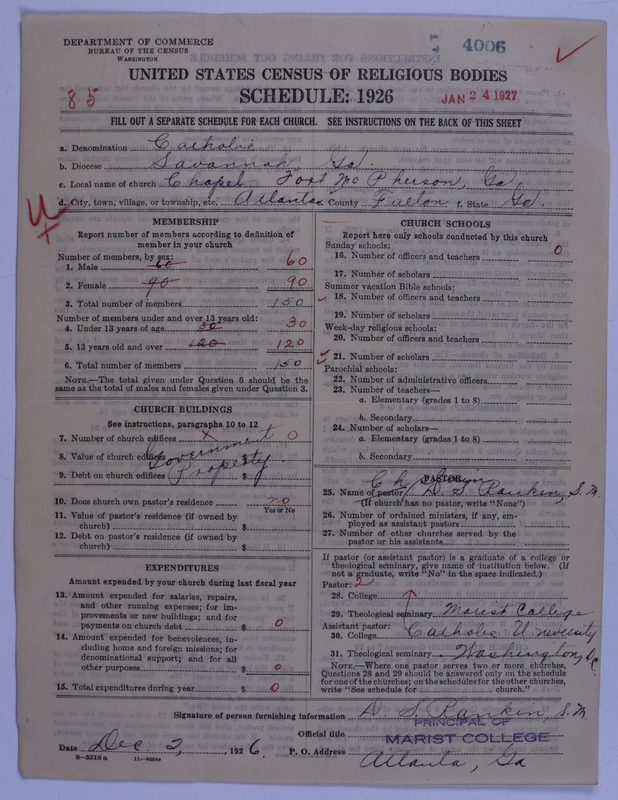 DEPARTMENT OF COMMERCE
BUREAU OF THE CENSUS
WASHINGTON
4006
UNITED STATES CENSUS OF RELIGIOUS BODIES
85
SCHEDULE: 1926
JAN 24 1927
FILL OUT A SEPARATE SCHEDULE FOR EACH CHURCH. SEE INSTRUCTIONS ON THE BACK OF THIS SHEET
a. Denomination Catholic
b. Diocese Savannah, Ga.
c. Local name of church Chapel Fort McPherson, Ga,
d. City, town, village, or township, etc. Atlanta e. County Fulton f. State Ga.
MEMBERSHIP
Report number of members according to definition of member in your church
Number of members, by sex:
1. Male 60 60
2. Female 90 90
3. Total number of members 150
Number of members under and over 13 years old:
4. Under 13 years of age 30 30
5. 13 years old and over 120 120
6. Total number of members 150
NOTE.—The total given under Question 6 should be the same as the total of males and females given under Question 3.
CHURCH BUILDINGS
See instructions, paragraphs 10 to 12
7. Number of church edifices x 0
8. Value of church edifices $
Government
9. Debt on church edifices $
Property
10. Does church own pastor's residence no
Yes or No
11. Value of pastor's residence (if owned by church) $
12. Debt on pastor's residence (if owned by church) $
EXPENDITURES
Amount expended by your church during last fiscal year
13. Amount expended for salaries, repairs, and other running expenses; for improvements or new buildings; and for payments on church debt $ 0
14. Amount expended for benevolences, including home and foreign missions; for denominational support; and for all other purposes $ 0
15. Total expenditures during year $ 0
CHURCH SCHOOLS
Report here only schools conducted by this church
Sunday schools:
16. Number of officers and teachers 0
17. Number of scholars
Summer vacation Bible schools:
18. Number of officers and teachers
19. Number of scholars
Week-day religious schools:
20. Number of officers and teachers
21. Number of scholars
Parochial schools:
22. Number of administrative officers
23. Number of teachers—
a. Elementary (grades 1 to 8)
b. Secondary
24. Number of scholars—
a. Elementary (grades 1 to 8)
b. Secondary
PASTOR
Chaplain
25. Name of pastor D. S. Rankin, S. M.
(If church has no pastor, write "None")
26. Number of ordained ministers, if any, employed as assistant pastors
27. Number of other churches served by the pastor or his assistants
If pastor (or assistant pastor) is a graduate of a college or theological seminary, give name of institution below. (If not a graduate, write "No" in the space indicated.)
Pastor: 2
28. College
29. Theological seminary Marist College
Assistant pastor:
30. College Catholic University
31. Theological seminary Washington, D.C.
NOTE.—Where one pastor serves two or more churches, Questions 28 and 29 should be answered only on the schedule for one of the churches; on the schedules for the other churches, write "See schedule for church."
Signature of person furnishing information D. S. Rankin, S. M
Official title PRINCIPAL OF
MARIST COLLEGE
Date Dec 2, 1926. P. O. Address Atlanta, Ga
8—5518a